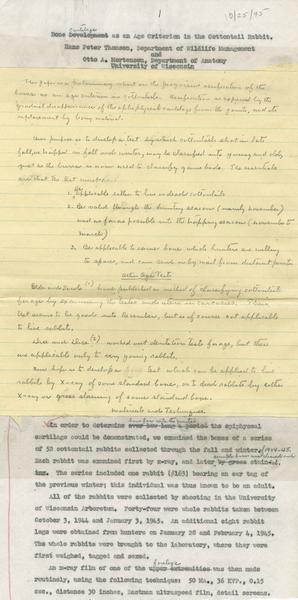 1
0/25/45
cartilage
Bone Development as an Age Criterion in the Cottontail Rabbit.
Hans Peter Thomsen, Department of Wildlife Management
and
Otto A. Mortensen, Department of Anatomy
University of Wisconsin
This paper is a preliminary report on the progressive ossification of the
bones as an age criterion in cottontails. Ossification is appraised by the
gradual disappearance of the epiphyseal cartilage from the joints, and its
replacement by bony material.
Our purpose is to develop a test by which cottontails shot in late
fall, or trapped in fall and winter, may be classified into young and old,
just as the bursa is now used to classify game birds. The essentials
are that the test must:
1. Be applicable either to live or dead cottontails
2. Be valid through the hunting season (mainly November)
and as far as possible into the trapping season (November to
March)
3. Be applicable to some bone which hunters are willing
to spare, and can send in by mail from distant points.
Other Age Tests
(1) have published a method of classifying cottontail
for age by examining the testes and uteri in carcasses. This
test seems to be good until December, but is of course not applicable
to live rabbits.
(2) worked out dentition tests for age, but these
are applicable only to very young rabbits.
We hope to develop a test which can be applied to live
rabbits by X-ray of some standard bone, or to dead rabbits by either
X-ray or gross skinning of some standard bone.
Materials and Techniques
In order to determine over how long a period the epiphyseal
cartilage could be demonstrated, we examined the bones of a series
of 52 cottontail rabbits collected through the fall and winter, 1944-45.
Each rabbit was examined first by x-ray, and later by gross
The series included one rabbit (#163) bearing an ear tag of
the previous winter; this individual was thus known to be an adult.
All of the rabbits were collected by shooting in the University
of Wisconsin Arboretum. Forty-four were whole rabbits taken between
October 3, 1944 and January 3, 1945. An additional eight rabbit
legs were obtained from hunters on January 28 and February 4, 1945.
The whole rabbits were brought to the laboratory, where they were
first weighed, tagged and sexed.
foreleg
An x-ray film of one of the upper extremities was then made
routinely, using the following technique: 50 MA., 36 KVP., 0.15
sec., distance 30 inches, Eastman ultraspeed film, detail screens.